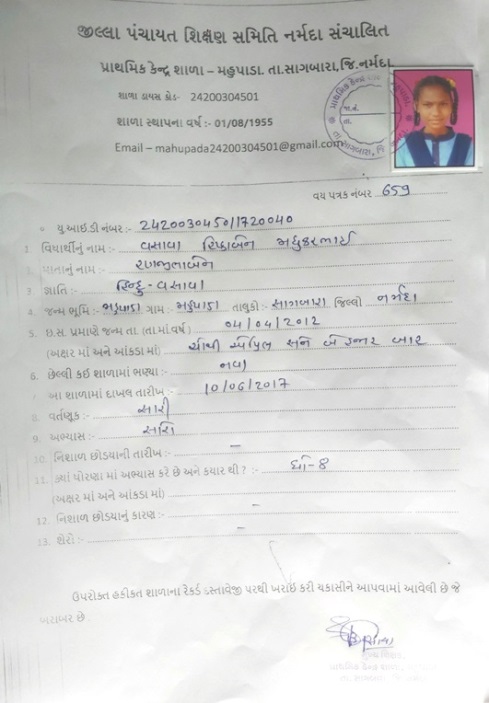 જીલ્લા પંચાયત શિક્ષણ સમિતિ નર્મદા સંચાલિત
પ્રાથમિક કેન્દ્ર શાળા – મહુપાડા. તા.સાગબારા,જિ.નર્મદા.
શાળા ડાયસ કોડ- 24200304501
શાળા સ્થાપના વર્ષ :- 01/08/1955
Email – mahupada24200304501@gmail.com
વય પત્રક નંબર 659
• યુ.આઈ.ડી નંબર :- 24200304501720040
1. વિદ્યાર્થીનું નામ :- વસાવા
2. માતાનું નામ :-
3. જ્ઞાતિ :- હિન્દુ-વસાવા
4. જન્મ ભૂમિ :- મહુપાડા ગામ :- મહુપાડા તાલુકો :- સાગબારા જિલ્લો નર્મદા
5. ઇ.સ. પ્રમાણે જન્મ તા. (તા માં વર્ષ) 04/04/2012
(અક્ષર માં અને આંકડા માં) ચોથી એપ્રિલ સને બે હજાર બાર
6. છેલ્લી કઈ શાળામાં ભણ્યા :- નવા
7. આ શાળામાં દાખલ તારીખ :- 10/06/2017
8. વર્તણૂક :- સારી
9. અભ્યાસ :- સારો
10. નિશાળ છોડયાની તારીખ :- –
11. ક્યાં ધોરણા માં અભ્યાસ કરે છે અને કયાર થી ? :- ધો-8
(અક્ષર માં અને આંકડા માં) –
12. નિશાળ છોડયાનું કારણ :- –
13. શેરો :- –
ઉપરોક્ત હકીકત શાળાના રેકર્ડ દસ્તાવેજી પરથી ખરાઈ કરી ચકાસીને આપવામાં આવેલી છે જે
બરાબર છે .